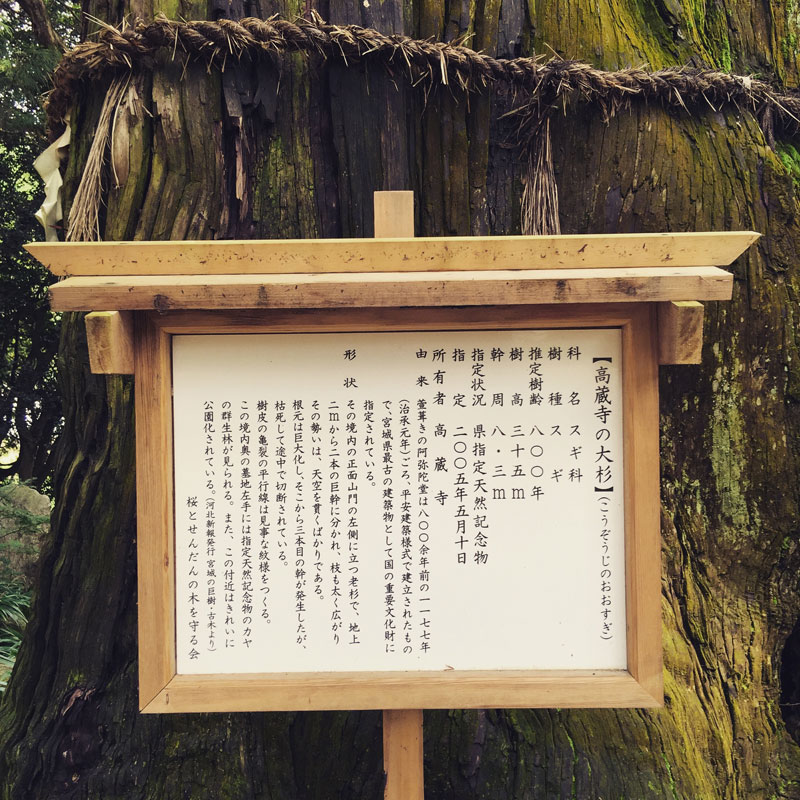 【高蔵寺の大杉】(こうぞうじのおおすぎ)
科　名　スギ科
樹　種　スギ
推定樹齢　八〇〇年
樹　高　三十五m
幹　周　八・三m
指定状況　県指定天然記念物
指　定　二〇〇五年五月十日
所有者　高蔵寺
由　来　萱葺きの阿弥陀堂は八〇〇余年前の一一七七年
(治承元年)ごろ、平安建築様式で建立されたもの
で、宮城県最古の建築物として国の重要文化財に
指定されている。
形　状　その境内の正面山門の左側に立つ老杉で、地上
二mから二本の巨幹に分かれ、枝も太く広がり
その勢いは、天空を貫くばかりである。
根元は巨大化し、そこから三本目の幹が発生したが、
枯死して途中で切断されている。
樹皮の亀裂の平行線は見事な紋様をつくる。
この境内奥の墓地左手には指定天然記念物のカヤ
の群生林が見られる。また、この付近はきれいに
公園化されている。(河北新報発行 宮城の巨樹・古木より)
桜とせんだんの木を守る会